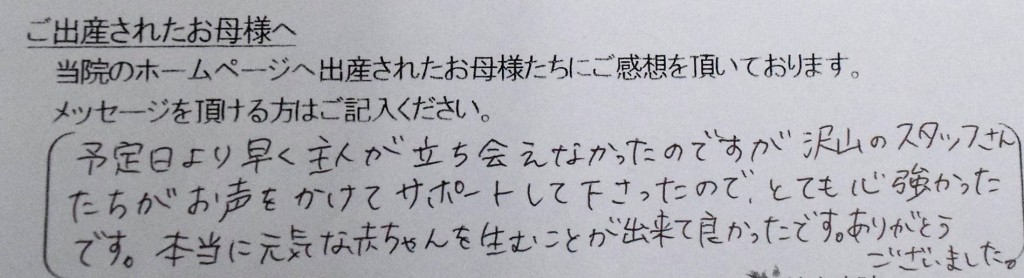 ご出産されたお母様へ
当院のホームページへ出産されたお母様たちにご感想を頂いております。
メッセージを頂ける方はご記入ください。
予定日より早く主人が立ち会えなかったのですが沢山のスタッフさん
たちがお声をかけてサポートして下さったので、とても心強かった
です。本当に元気な赤ちゃんを生むことが出来て良かったです。ありがとう
ございました。